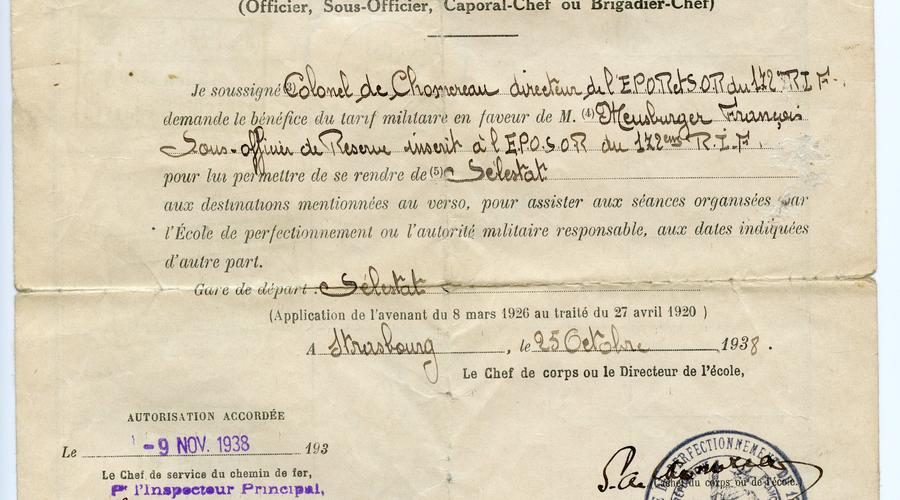 (Officier, Sous-Officier, Caporal-Chef ou Brigadier-Chef)
Je soussigné (3) Colonel de Chomereau directeur de l'E.P.O.R et S.O.R du 172me R.I.F.
demande le bénéfice du tarif militaire en faveur de M. (4) Meusburger François
Sous-officier de Reserve inscrit à l'E.P.O.S.O.R du 172eme R.I.F.
pour lui permettre de se rendre de (5) Sélestat
aux destinations mentionnées au verso, pour assister aux séances organisées par
l'École de perfectionnement ou l'autorité militaire responsable, aux dates indiquées
d'autre part.
Gare de départ : Sélestat
(Application de l'avenant du 8 mars 1926 au traité du 27 avril 1920 )
A Strasbourg, le 25 Octobre 1938.
Le Chef de corps ou le Directeur de l'école,
AUTORISATION ACCORDÉE
Le -9 NOV. 1938 193
Le Chef de service du chemin de fer,
Pr l'Inspecteur Principal,
DE PERFECTIONNEMENT
Cachet du corps ou de l'école.